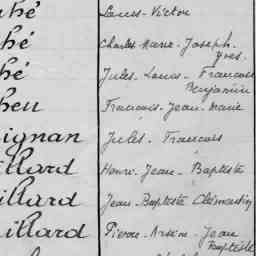 ahé Louis-Victor
hé Charles-Marie-Joseph-
Yves
hé Jules-Louis-Francois
Benjamin
heu Francois-Jean-Marie
ignan Jules-Francois
illard Henri-Jean-Baptiste
illard Jean-Baptiste Clémentin
uillard Pierre-Arsène-Jean
Baptiste